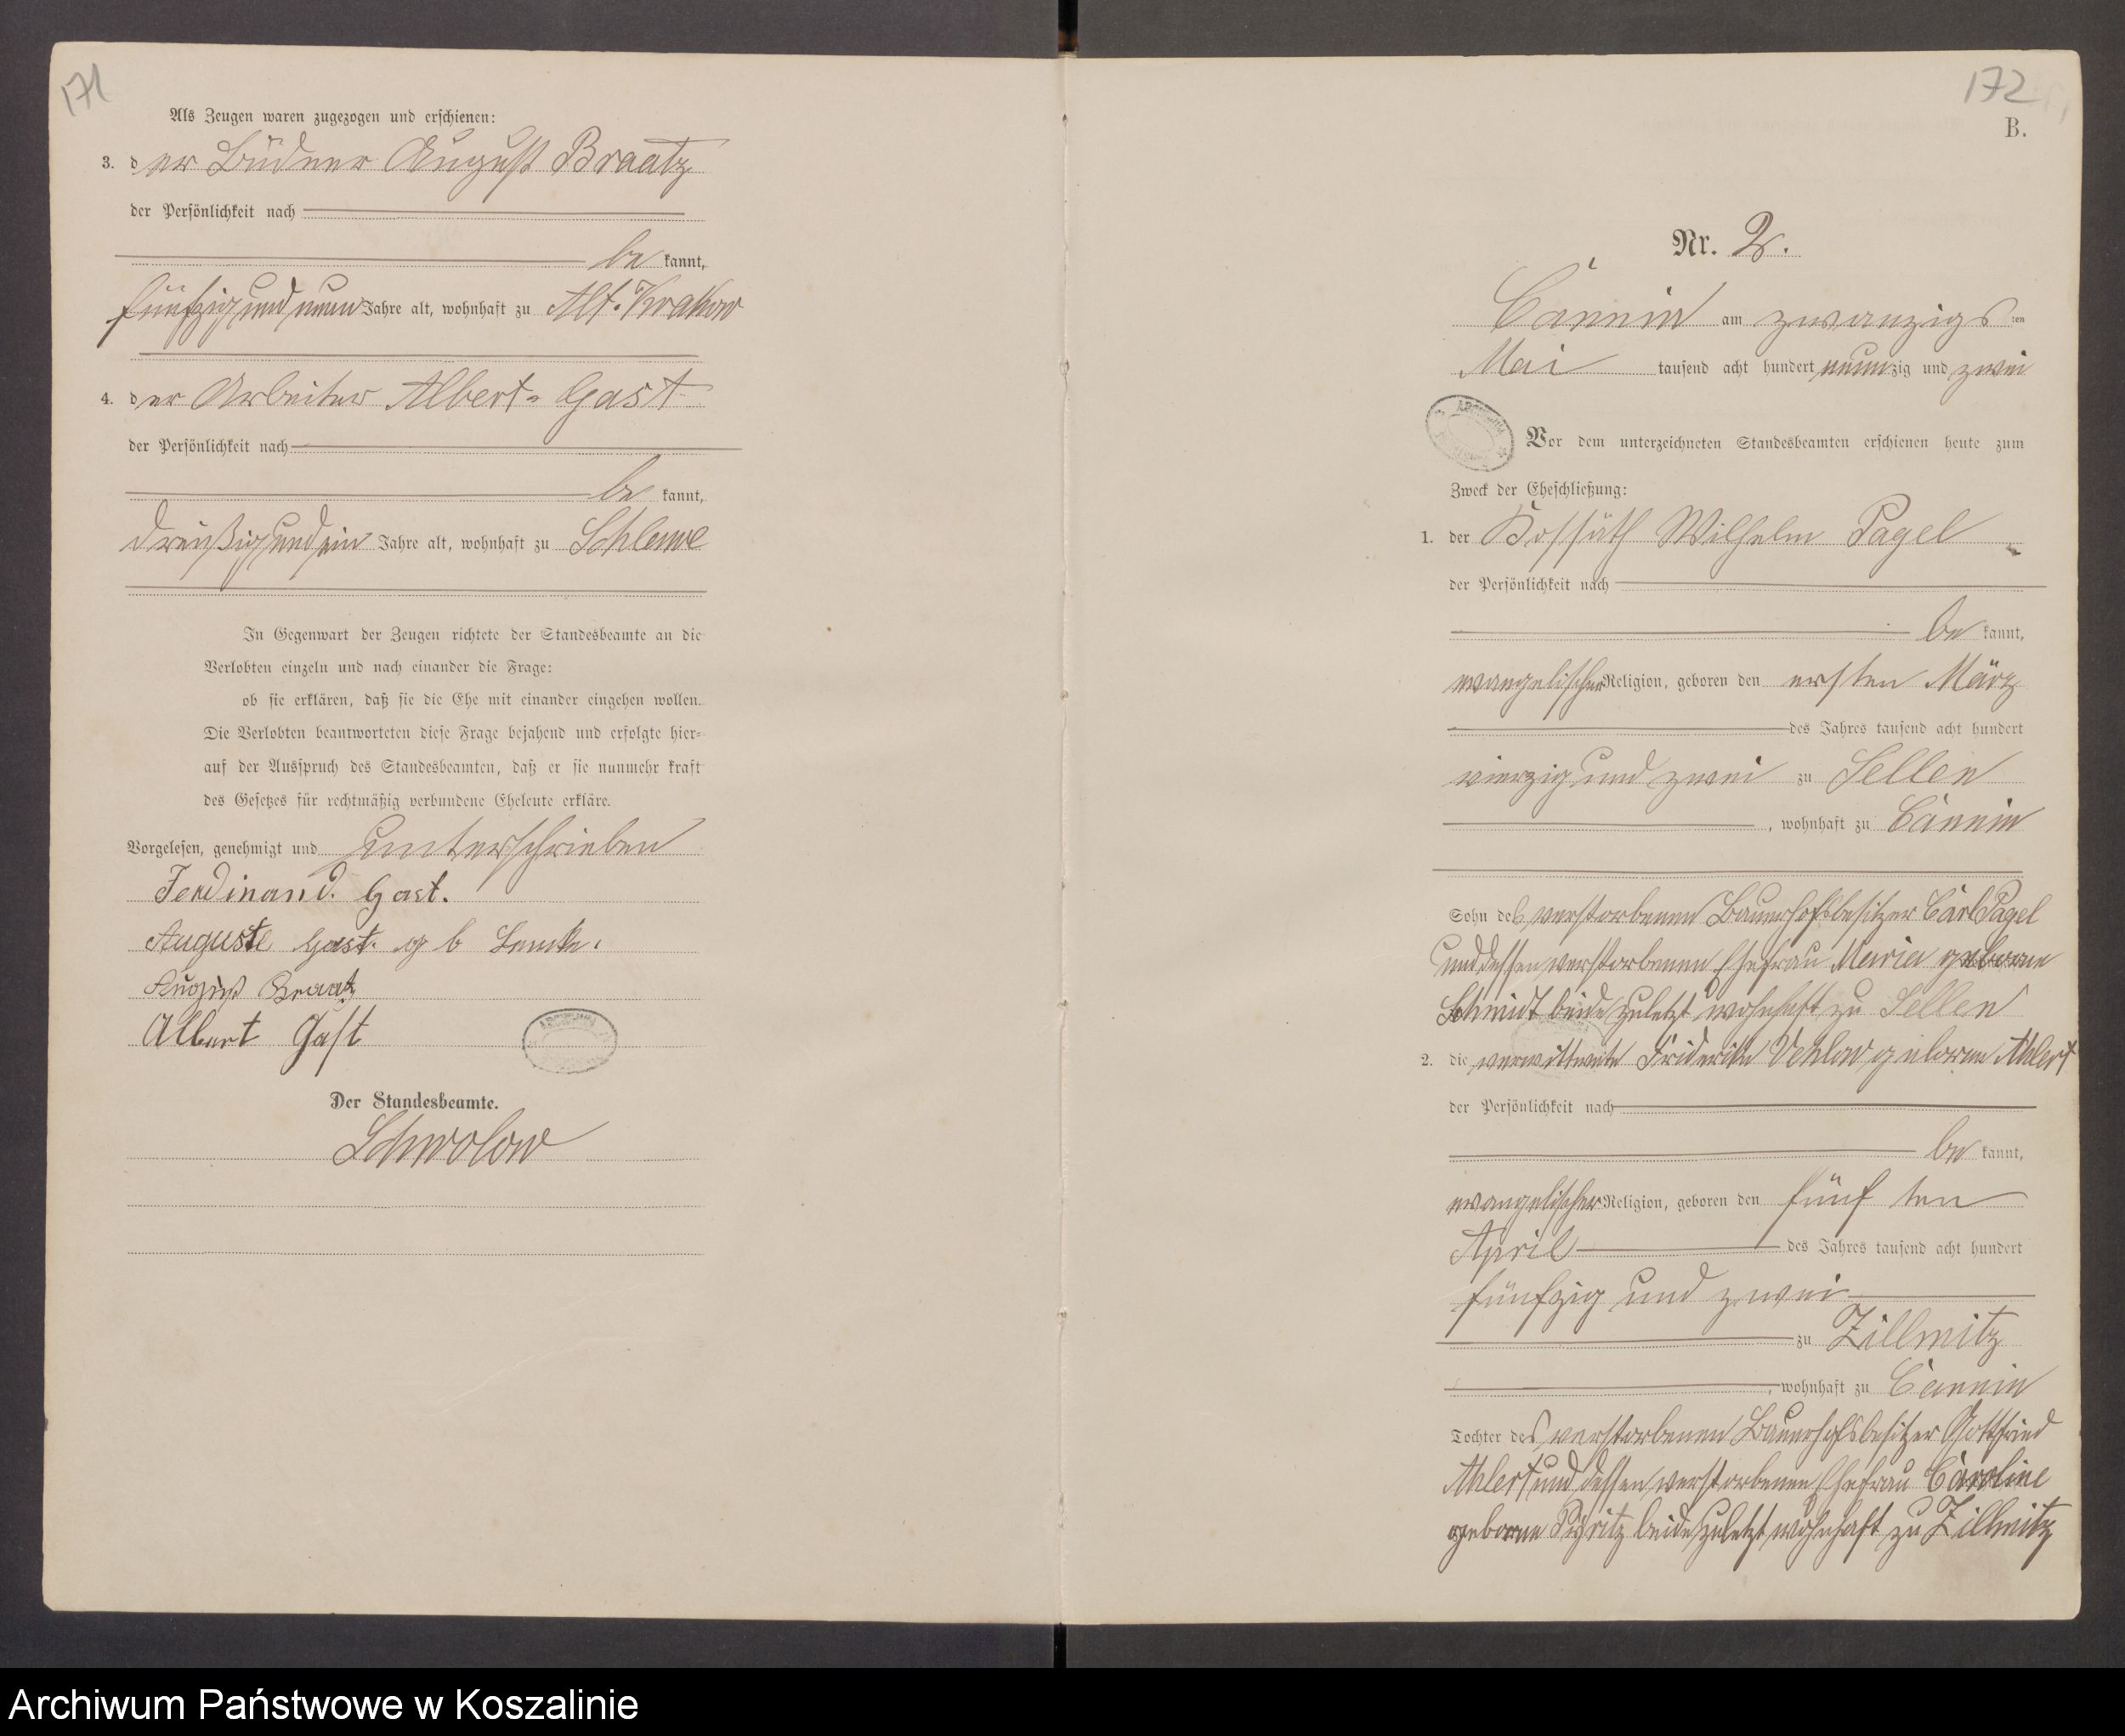 171
Als Zeugen waren zugezogen und erschienen:
3. der Büdner August Braatz
der Persönlichkeit nach
be kannt,
fünfzig und neun Jahre alt, wohnhaft zu Alt-Krakow
4. der Arbeiter Albert Gast
der Persönlichkeit nach
be kannt,
dreißig und ein Jahre alt, wohnhaft zu Schlawe
In Gegenwart der Zeugen richtete der Standesbeamte an die
Verlobten einzeln und nach einander die Frage:
ob sie erklären, daß sie die Ehe mit einander eingehen wollen.
Die Verlobten beantworteten diese Frage bejahend und erfolgte hier-
auf der Ausspruch des Standesbeamten, daß er sie nunmehr kraft
des Gesetzes für rechtmäßig verbundene Eheleute erkläre.
Vorgelesen, genehmigt und unterschrieben
Ferdinand. Gast.
Auguste Gast. g b
August Braatz
Albert Gast
Der Standesbeamte.
Schwolow
172
B.
Nr. 2.
Cannin am zwanzigsten
Mai tausend acht hundert neunzig und zwei
Vor dem unterzeichneten Standesbeamten erschienen heute zum
Zweck der Eheschließung:
1. der Kossäth Wilhelm Pagel
der Persönlichkeit nach
be kannt,
evangelischer Religion, geboren den ersten März
des Jahres tausend acht hundert
vierzig und zwei zu Sellen
, wohnhaft zu Cannin
Sohn des verstorbenen Bauerhofsbesitzer Carl Pagel
und dessen verstorbenen Ehefrau Maria geborne
Schmidt beide zuletzt wohnhaft zu Sellen
2. die verwittwete Friderike Venlow geborne Ahlert
der Persönlichkeit nach
be kannt,
evangelischer Religion, geboren den fünf ten
April des Jahres tausend acht hundert
fünfzig und zwei
zu Zillmitz
, wohnhaft zu Cannin
Tochter des verstorbenen Bauerhofsbesitzer Gottfried
Ahlert und dessen verstorbenen Ehefrau Caroline
geborne Pyritz beide zuletzt wohnhaft zu Zillmitz
Archiwum Państwowe w Koszalinie